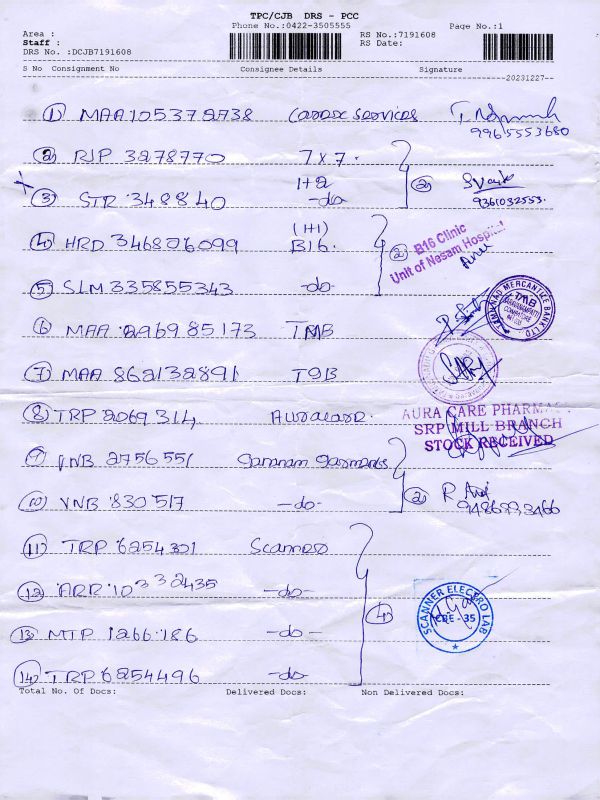 TPC/CJB DRS - PCC
Phone No.:0422-3505555 Page No.:1
Area : RS No.:7191608
Staff : RS Date:
DRS No. :DCJB7191608
S No Consignment No Consignee Details Signature
20231227--
1 MAA1053728738 services 9965553680
2 RJP 3278770 7x7. 2
1+2
3 STR 348840 -do- 9361032553.
(1+1)
4 HRD 346826099 B16. 2 B16 Clinic
Unit of Nesam Hospital
5 SLM 335855343 -do-
TAMILNAD MERCANTILE BANK LTD.
TMB
6 MAA 296985173 TMB
7 MAA 862132891
8 TRP 2069314 Auracare.
AURA CARE PHARMA
SRP MILL BRANCH
STOCK RECEIVED
9 VNB 2756551 Garments
10 VNB 830517 -do- 2
11 TRP 6254301 Scanner
12 ARR 10332435 -do- 4
SCANNER ELECTRO LAB
CBE - 35
13 MTP 1266186 -do-
14 TRP 6254496 -do-
Total No. Of Docs: Delivered Docs: Non Delivered Docs: